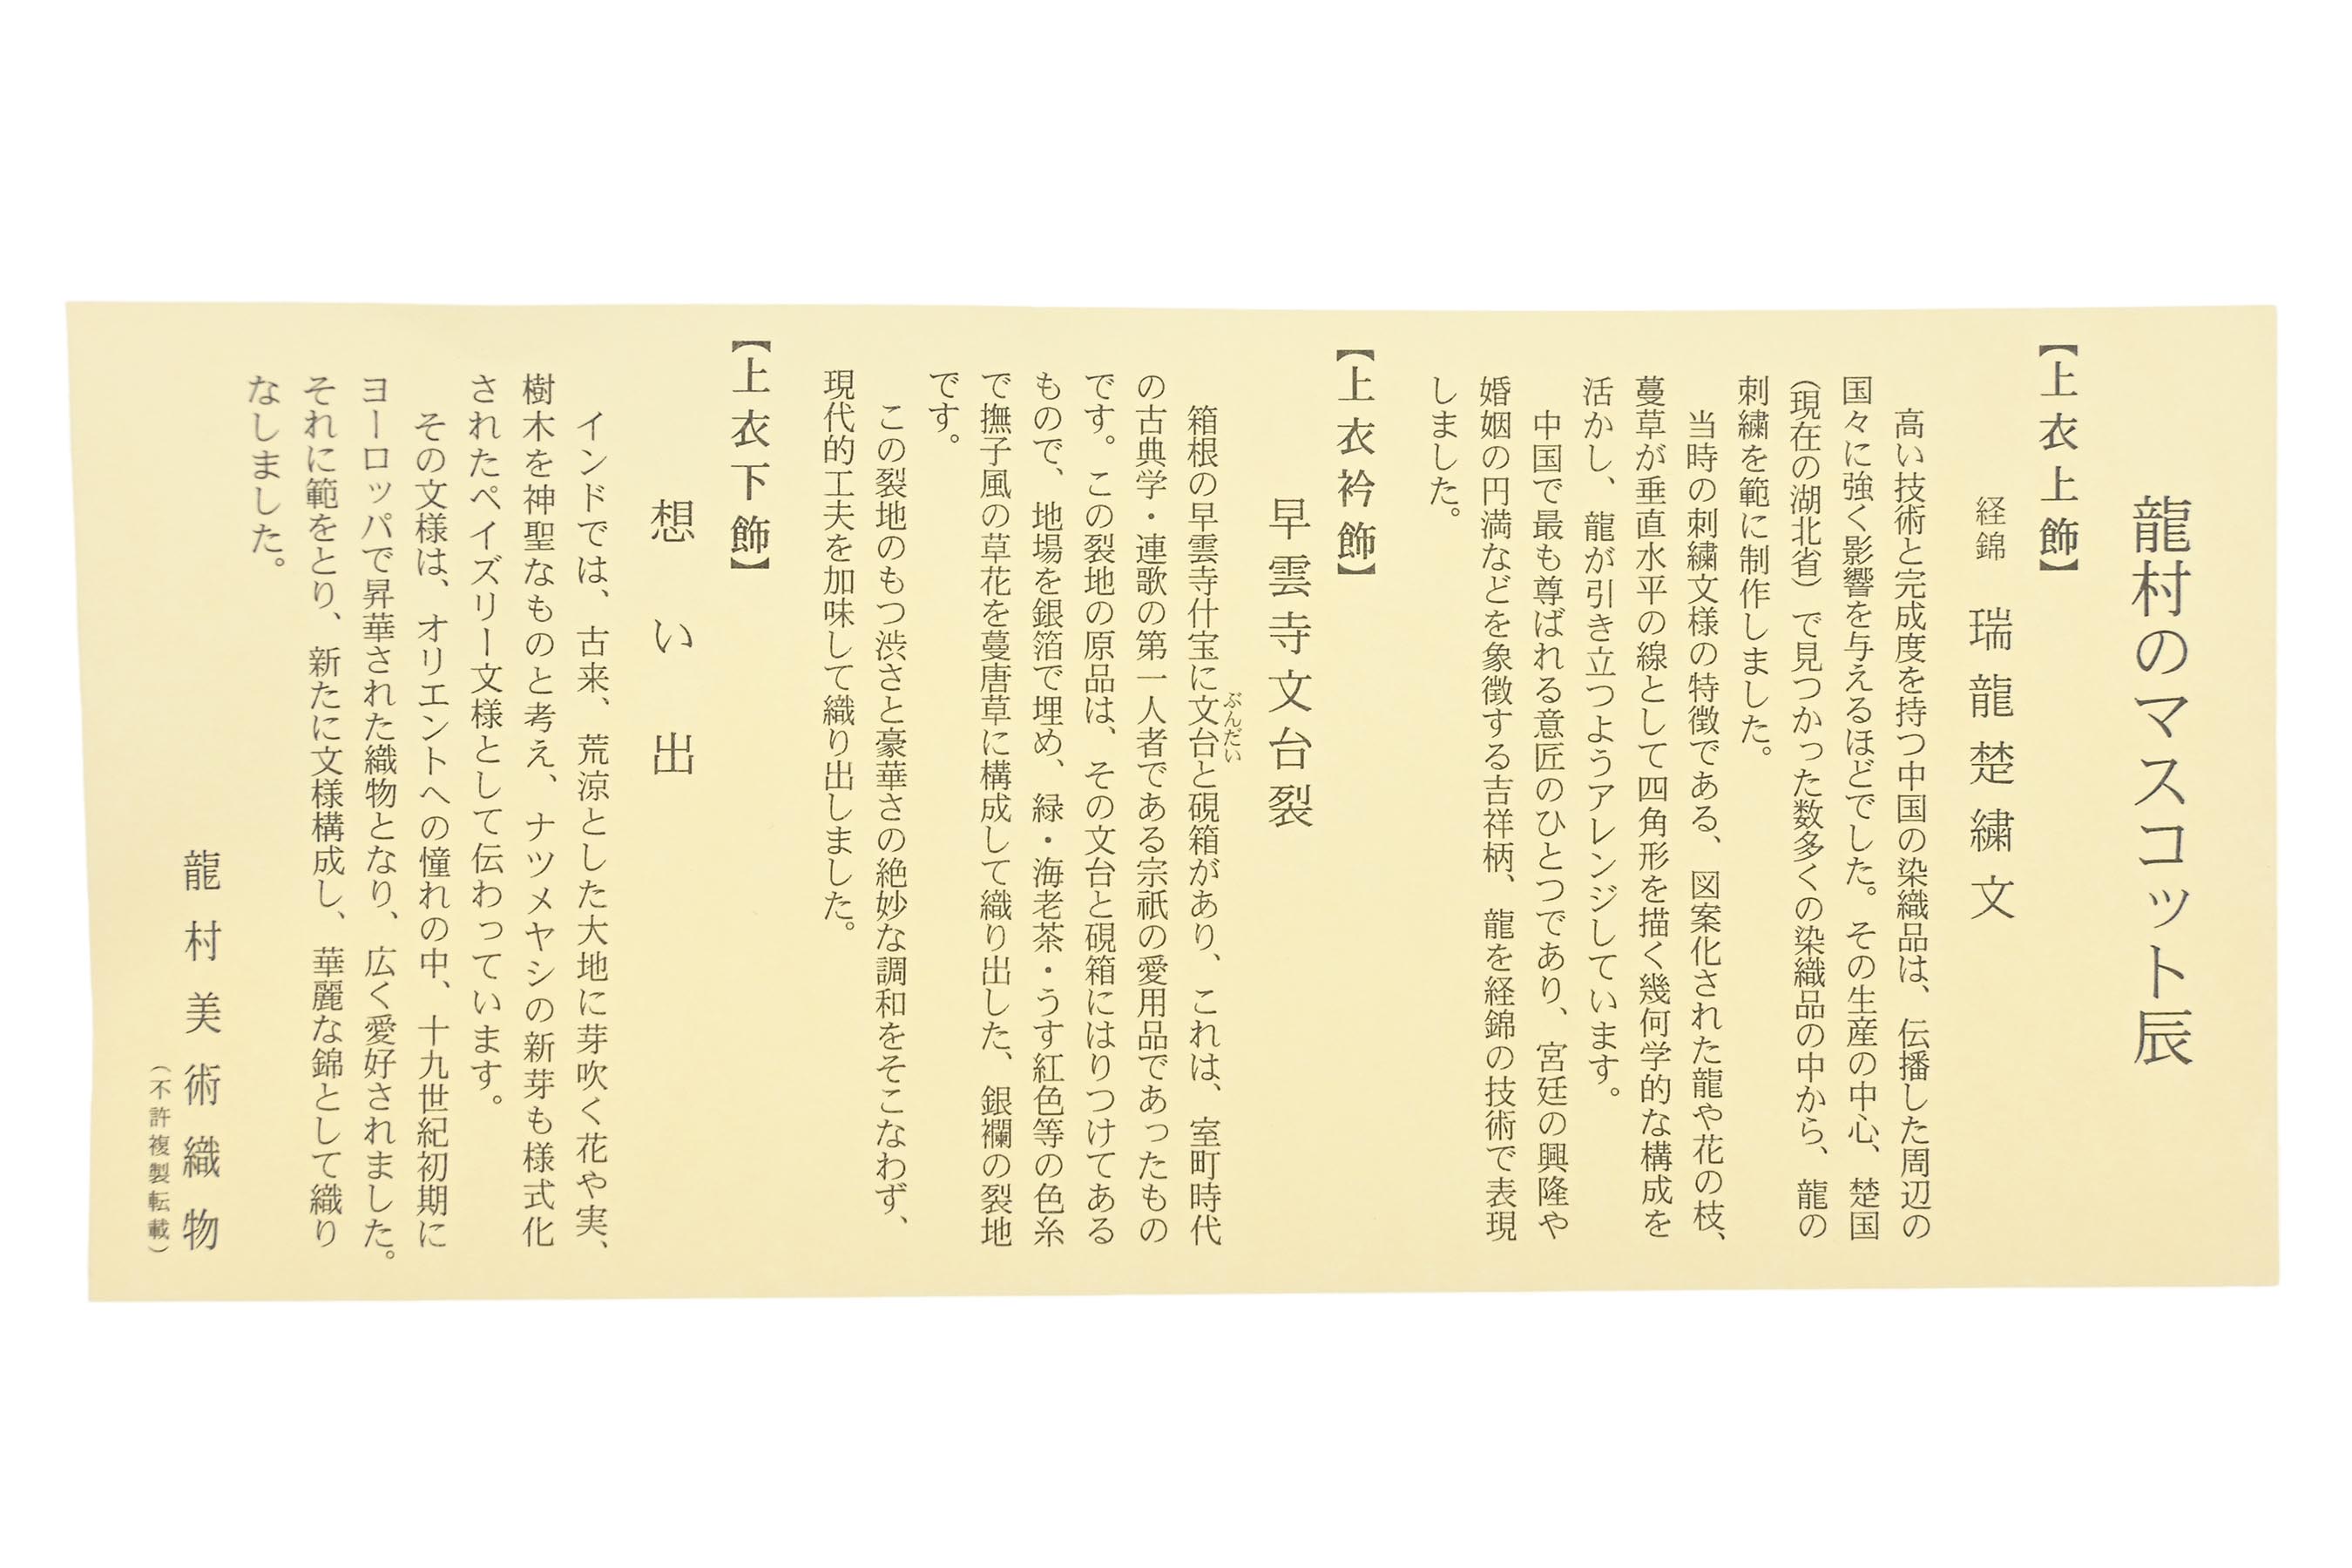 龍村のマスコット辰
【上衣上飾】
経錦　瑞龍楚繍文
高い技術と完成度を持つ中国の染織品は、伝播した周辺の
国々に強く影響を与えるほどでした。その生産の中心、楚国
（現在の湖北省）で見つかった数多くの染織品の中から、龍の
刺繍を範に制作しました。
当時の刺繍文様の特徴である、図案化された龍や花の枝、
蔓草が垂直水平の線として四角形を描く幾何学的な構成を
活かし、龍が引き立つようアレンジしています。
中国で最も尊ばれる意匠のひとつであり、宮廷の興隆や
婚姻の円満などを象徴する吉祥柄、龍を経錦の技術で表現
しました。
【上衣衿飾】
早雲寺文台裂
ぶんだい
箱根の早雲寺什宝に文台と硯箱があり、これは、室町時代
の古典学・連歌の第一人者である宗祇の愛用品であったもの
です。この裂地の原品は、その文台と硯箱にはりつけてある
もので、地場を銀箔で埋め、緑・海老茶・うす紅色等の色糸
で撫子風の草花を蔓唐草に構成して織り出した、銀襴の裂地
です。
この裂地のもつ渋さと豪華さの絶妙な調和をそこなわず、
現代的工夫を加味して織り出しました。
【上衣下飾】
想い出
インドでは、古来、荒涼とした大地に芽吹く花や実、
樹木を神聖なものと考え、ナツメヤシの新芽も様式化
されたペイズリー文様として伝わっています。
その文様は、オリエントへの憧れの中、十九世紀初期に
ヨーロッパで昇華された織物となり、広く愛好されました。
それに範をとり、新たに文様構成し、華麗な錦として織り
なしました。
龍村美術織物
（不許複製転載）